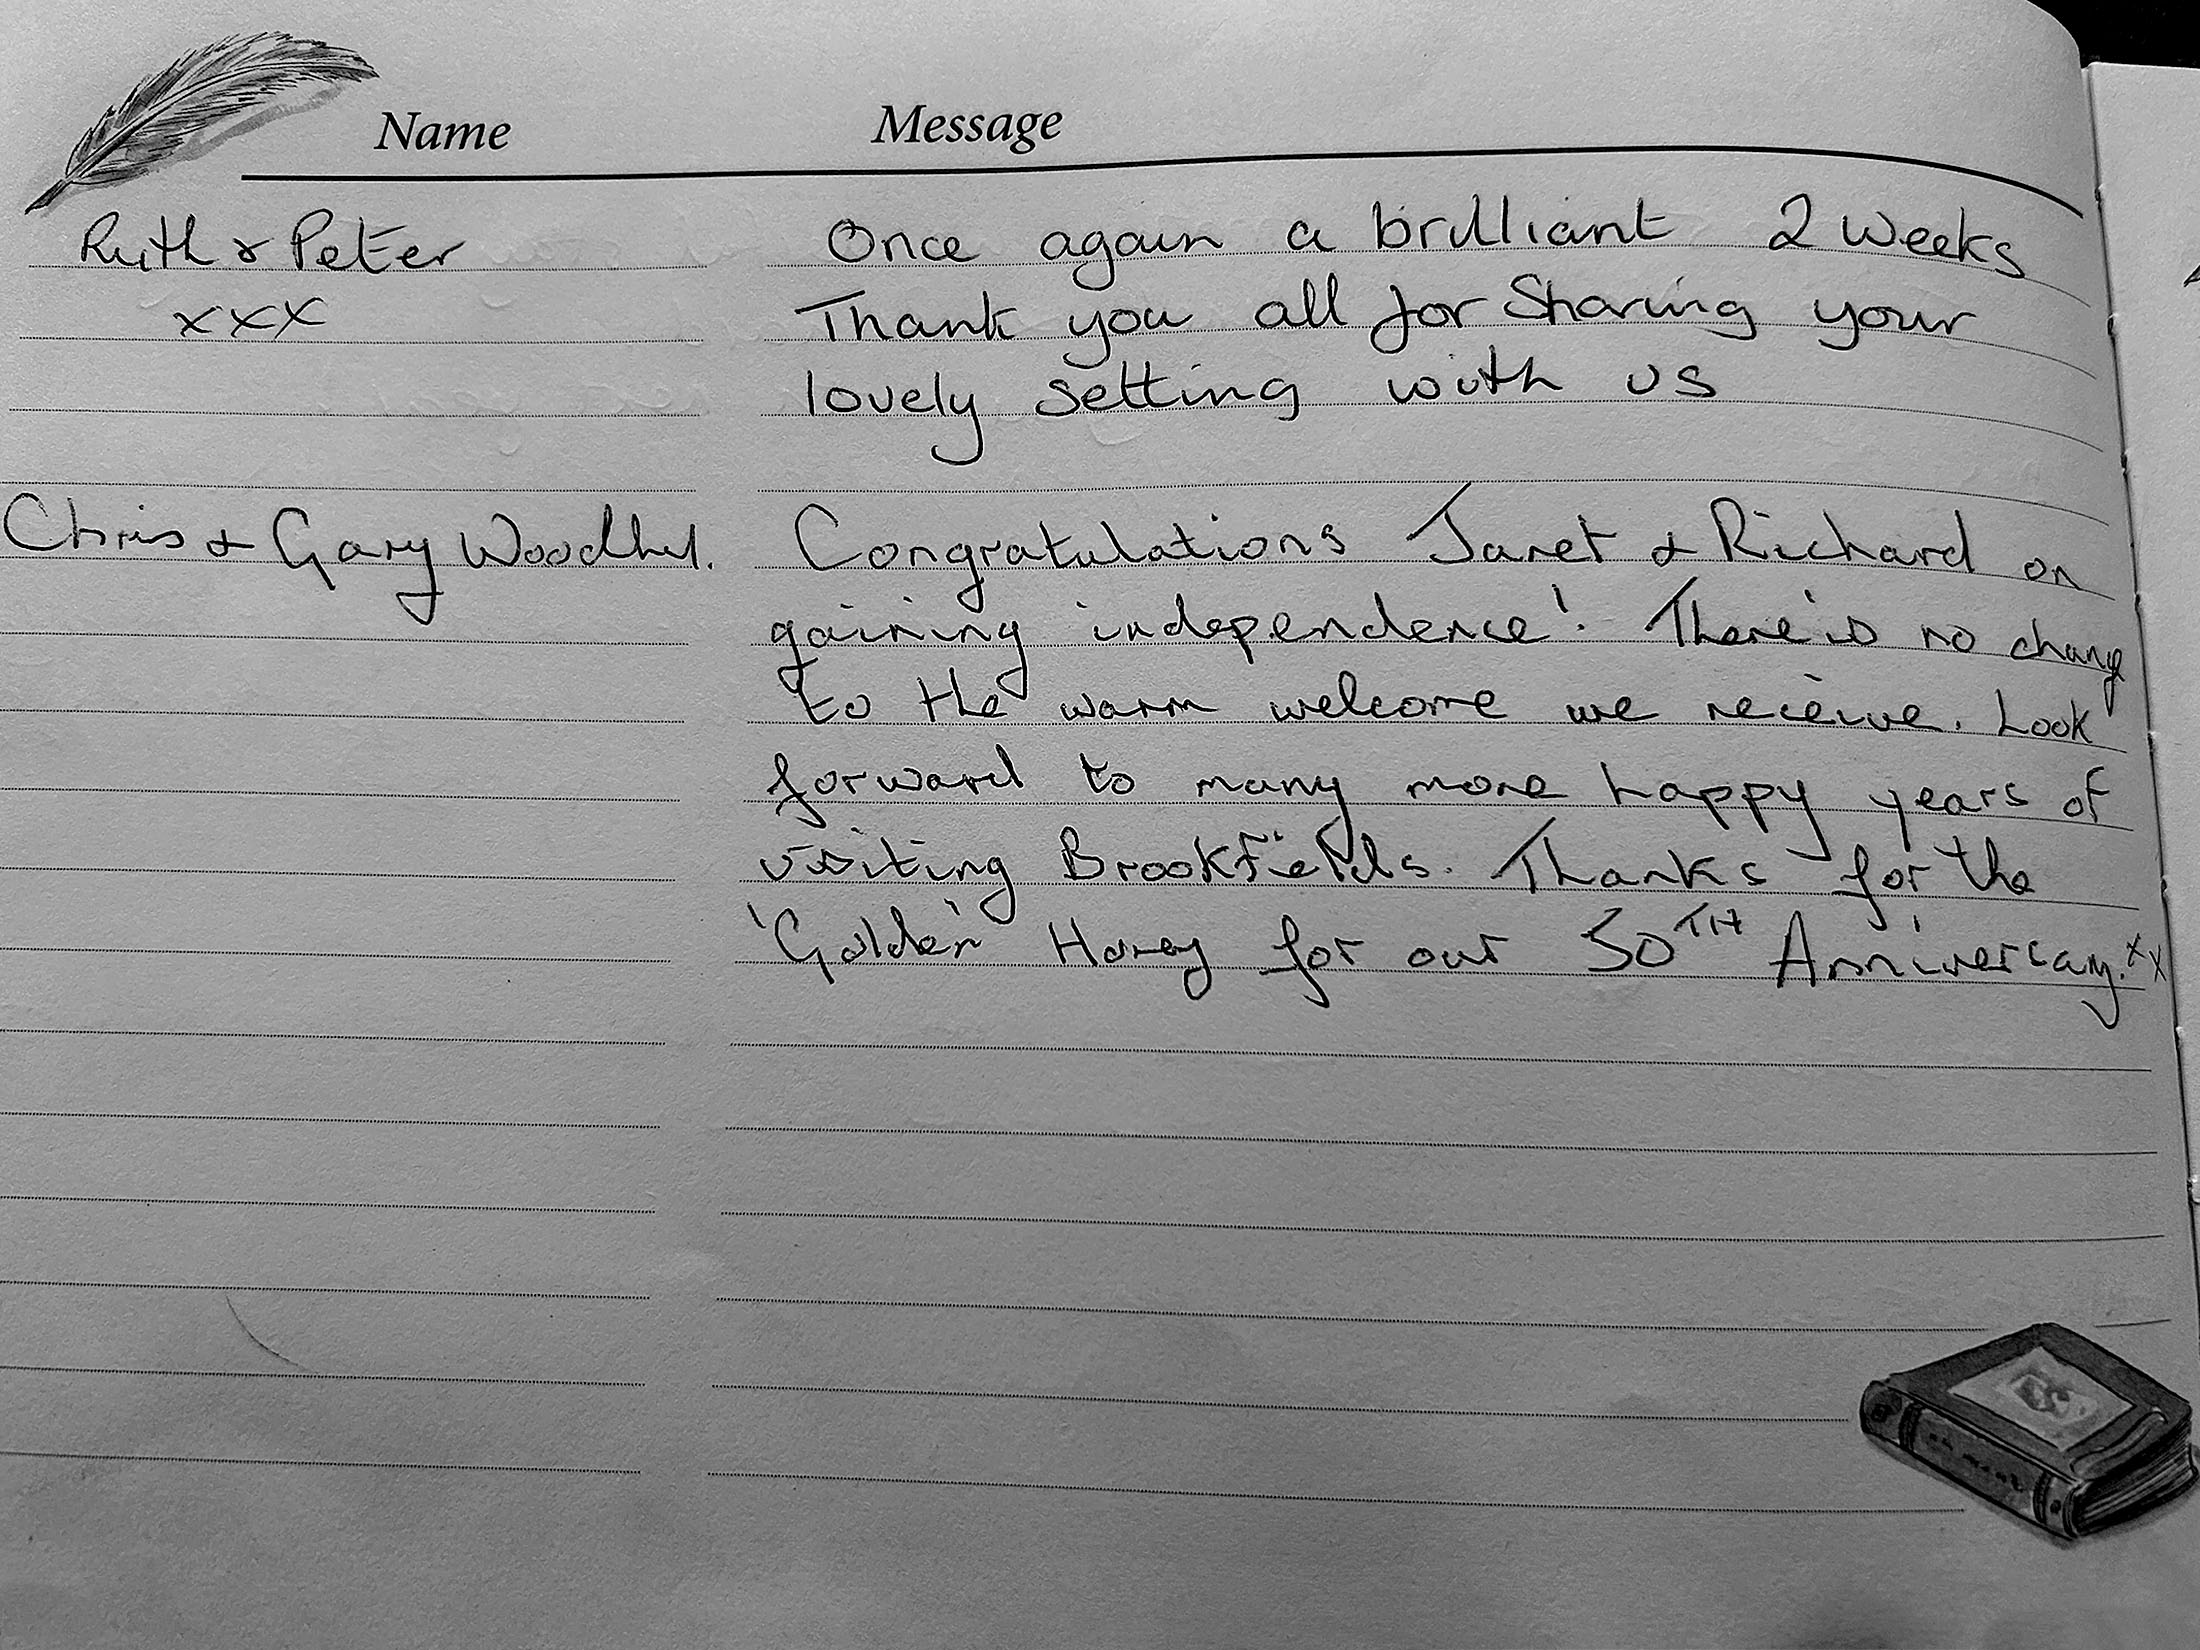 Name Message
Ruth & Peter Once again a brilliant 2 weeks
xxx Thank you all for Sharing your
lovely setting with us
Chris & Gary Congratulations Janet & Richard on
gaining independence! There is no change
to the warm welcome we receive. Look
forward to many more happy years of
visiting Brookfields. Thanks for the
'Golden' Honey for our 50TH Anniversary. xx